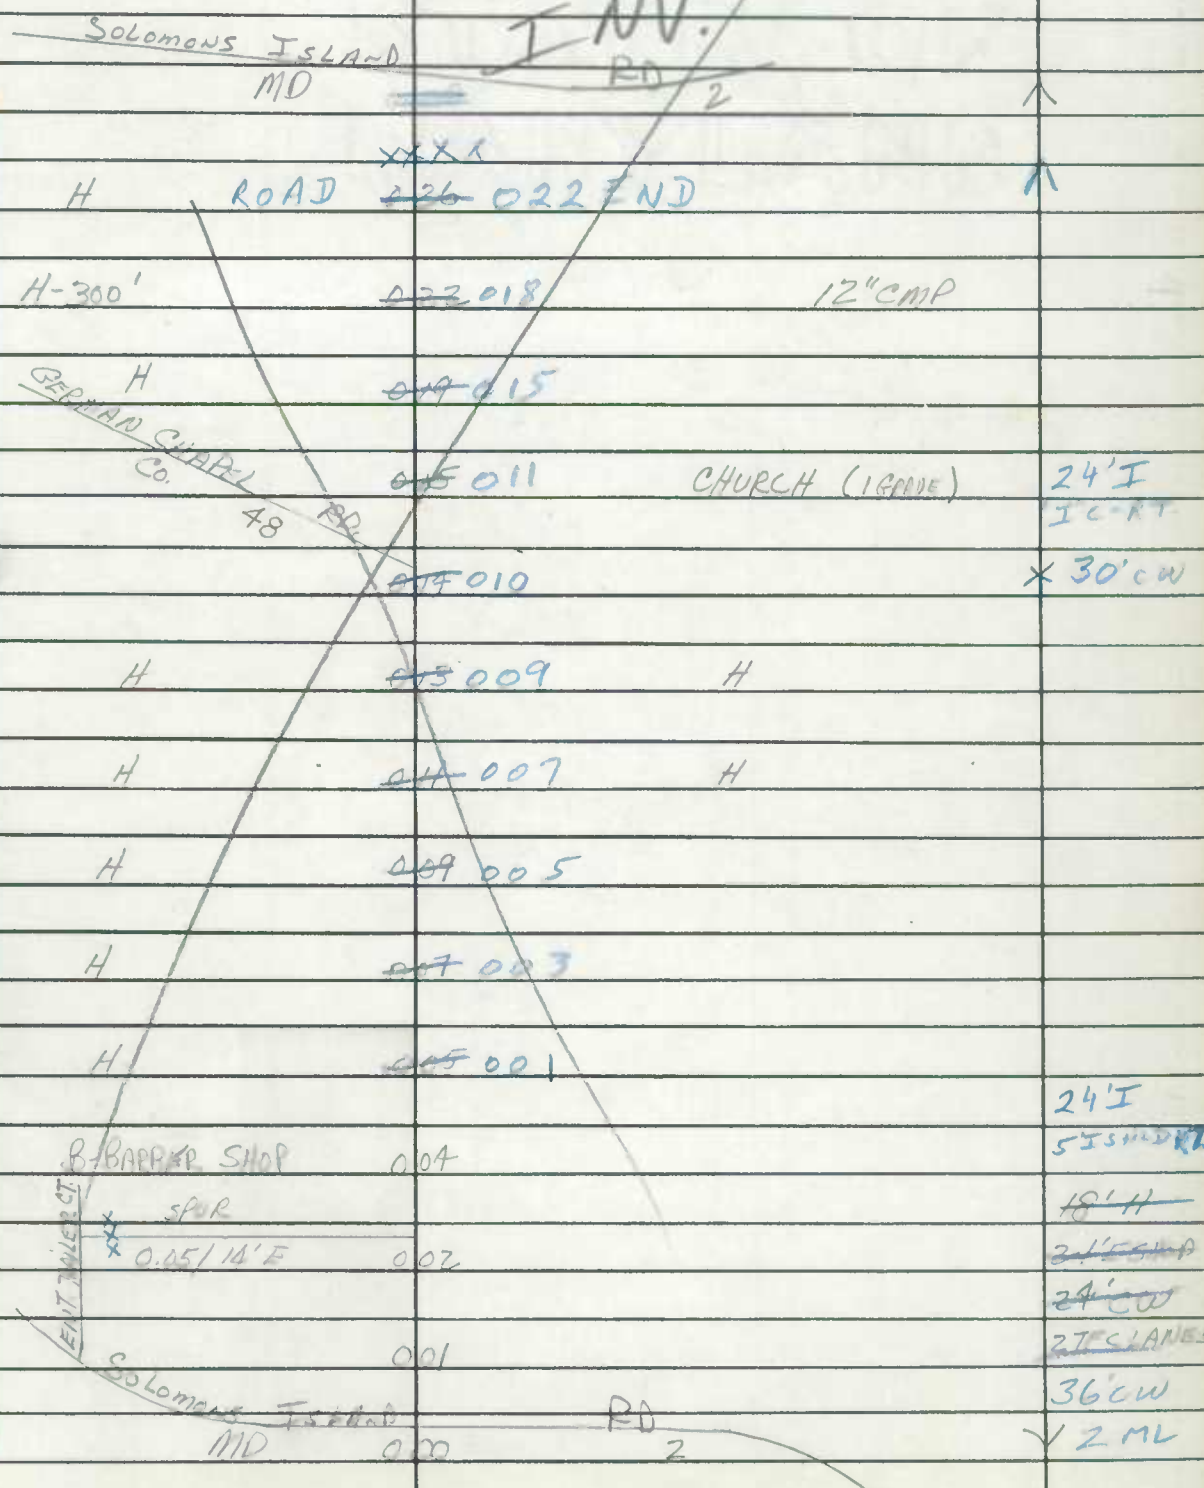 INV.
SOLOMONS ISLAND RD
MD 2
XXXX
H ROAD 026 022 END
H-300' 022 018 12"CMP
H 019 015
GERMAN CHAPEL RD.
CO. 48
015 011 CHURCH (1GRADE) 24'I
014 010 X 30'CW
H 013 009 H
H 011 007 H
H 009 005
H 007 003
H 005 001
24'I
B-BARBER SHOP 0.04 5'I SHLD RT
18'H
SPUR
XXX
0.05/14'E 0.02
24'CW
ENT. TRAILER CT.
0.01
36'CW
SOLOMONS ISLAND RD
MD 0.00 2 2 ML